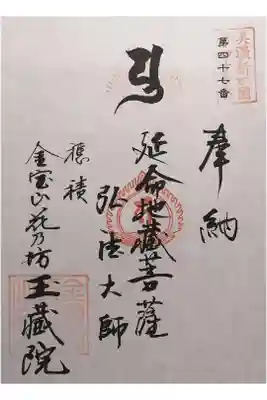 美濃新四国
第四十七番
奉納
延命地蔵菩薩
弘法大師
穂積
金宝山花乃坊
王蔵院